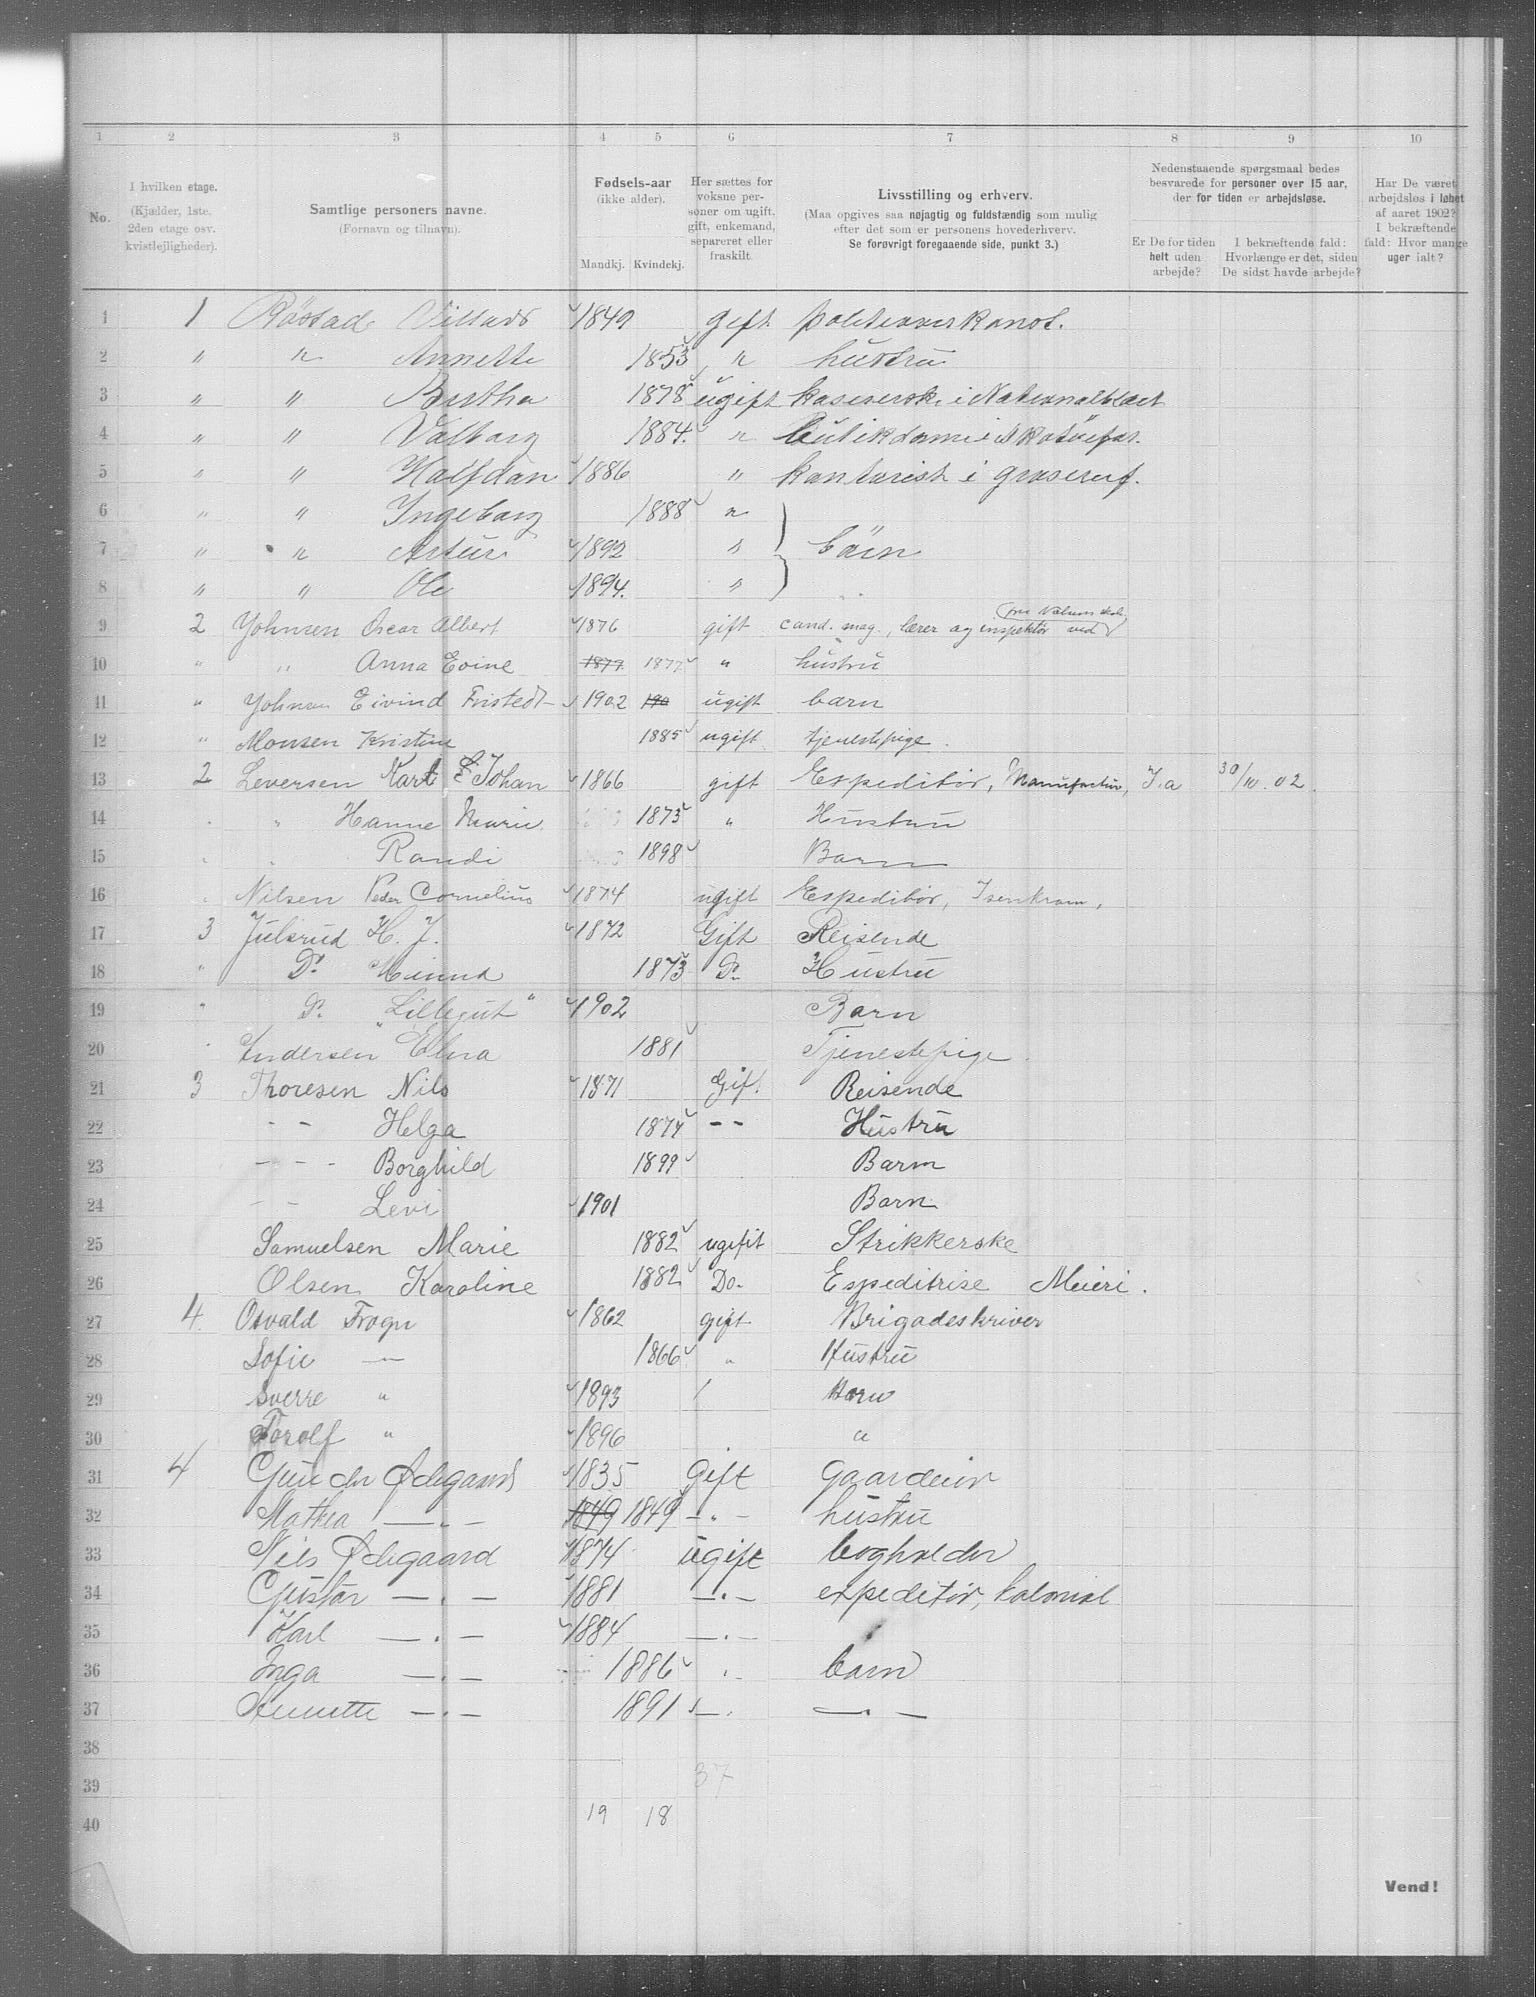 1 2 3 4 5 6 7 8 9 10
No.
I hvilken etage.
(Kjælder, 1ste.
2den etage osv.
kvistlejligheder).
Samtlige personers navne.
(Fornavn og tilnavn).
Fødsels-aar
(ikke alder).
Mandkj. Kvindekj.
Her sættes for
voksne per-
soner om ugift,
gift, enkemand,
separeret eller
fraskilt.
Livsstilling og erhverv.
(Maa opgives saa nøjagtig og fuldstændig som mulig
efter det som er personens hovederhverv.
Se forøvrigt foregaaende side, punkt 3.)
Nedenstaaende spørgsmaal bedes
besvarede for personer over 15 aar,
der for tiden er arbejdsløse.
Er De for tiden
helt uden
arbejde?
I bekræftende fald:
Hvorlænge er det, siden
De sidst havde arbejde?
Har De været
arbejdsløs i løbet
af aaret 1902?
I bekræftende
fald: Hvor mange
uger ialt?
1 1 Röstad 1849 gift
2 " " Annette 1853 " hustru
3 " " Bertha 1878 ugift i Nationaltheat
4 " " Valborg 1884. " Butikdame i
5 " " Halfdan 1886 " kontorist i
6 " " Ingeborg 1888 "
7 " " Artur 1892 " börn
8 " " Ole 1894. "
9 2 Yohnsen Oscar Albert 1876 gift cand. mag., lærer og inspektør ved
10 " " Anna Evine 1877 1877 " hustru
11 " Yohnsen Eivind Fristedt 1902 190 ugift barn
12 " Monsen Kristine 1885 ugift tjenestepige.
13 2 Leversen Karl Johan 1866 gift Expeditør, Manufactur, Ja 30/10.02.
14 " " Hanne Marie 1873 " Hustru
15 " " Randi 1898 Barn
16 " Nilsen Peder Cornelius 1874 ugift Expeditör, Isenkram,
17 3 Julsrud H. J. 1872 Gift Reisende
18 " Do 1873 Do Hustru
19 " Do "Lillegut" 1902 Barn
20 " Andersen Elna 1881 Tjenestepige.
21 3 Thoresen Nils 1871 Gif. Reisende
22 - - Helga 1874 - - Hustru
23 - - - Borghild 1899 Barn
24 - - Levi 1901 Barn
25 Samuelsen Marie 1882 ugift Strikkerske
26 Olsen Karoline 1882 Do. Expeditrise Meieri.
27 4. Osvald Frogn 1862 gift Brigadeskriver
28 Sofie — 1866 " Hustru
29 Sverre " 1893 Barn
30 Torolf " 1896 "
31 4 Gunder Ødegaard 1835 Gift Gaardeier
32 Mathea — " — 1849 1849 - " - hustru
33 Niels Ødegaard 1874 ugift bogholder
34 Gustav — " — 1881 — " — expeditør, kolonial
35 Karl — " — 1884 — " —
36 Inga — " — 1886 " barn
37 Annette — " — 1891 — " — " —
38
39 37
40 19 18
Vend!